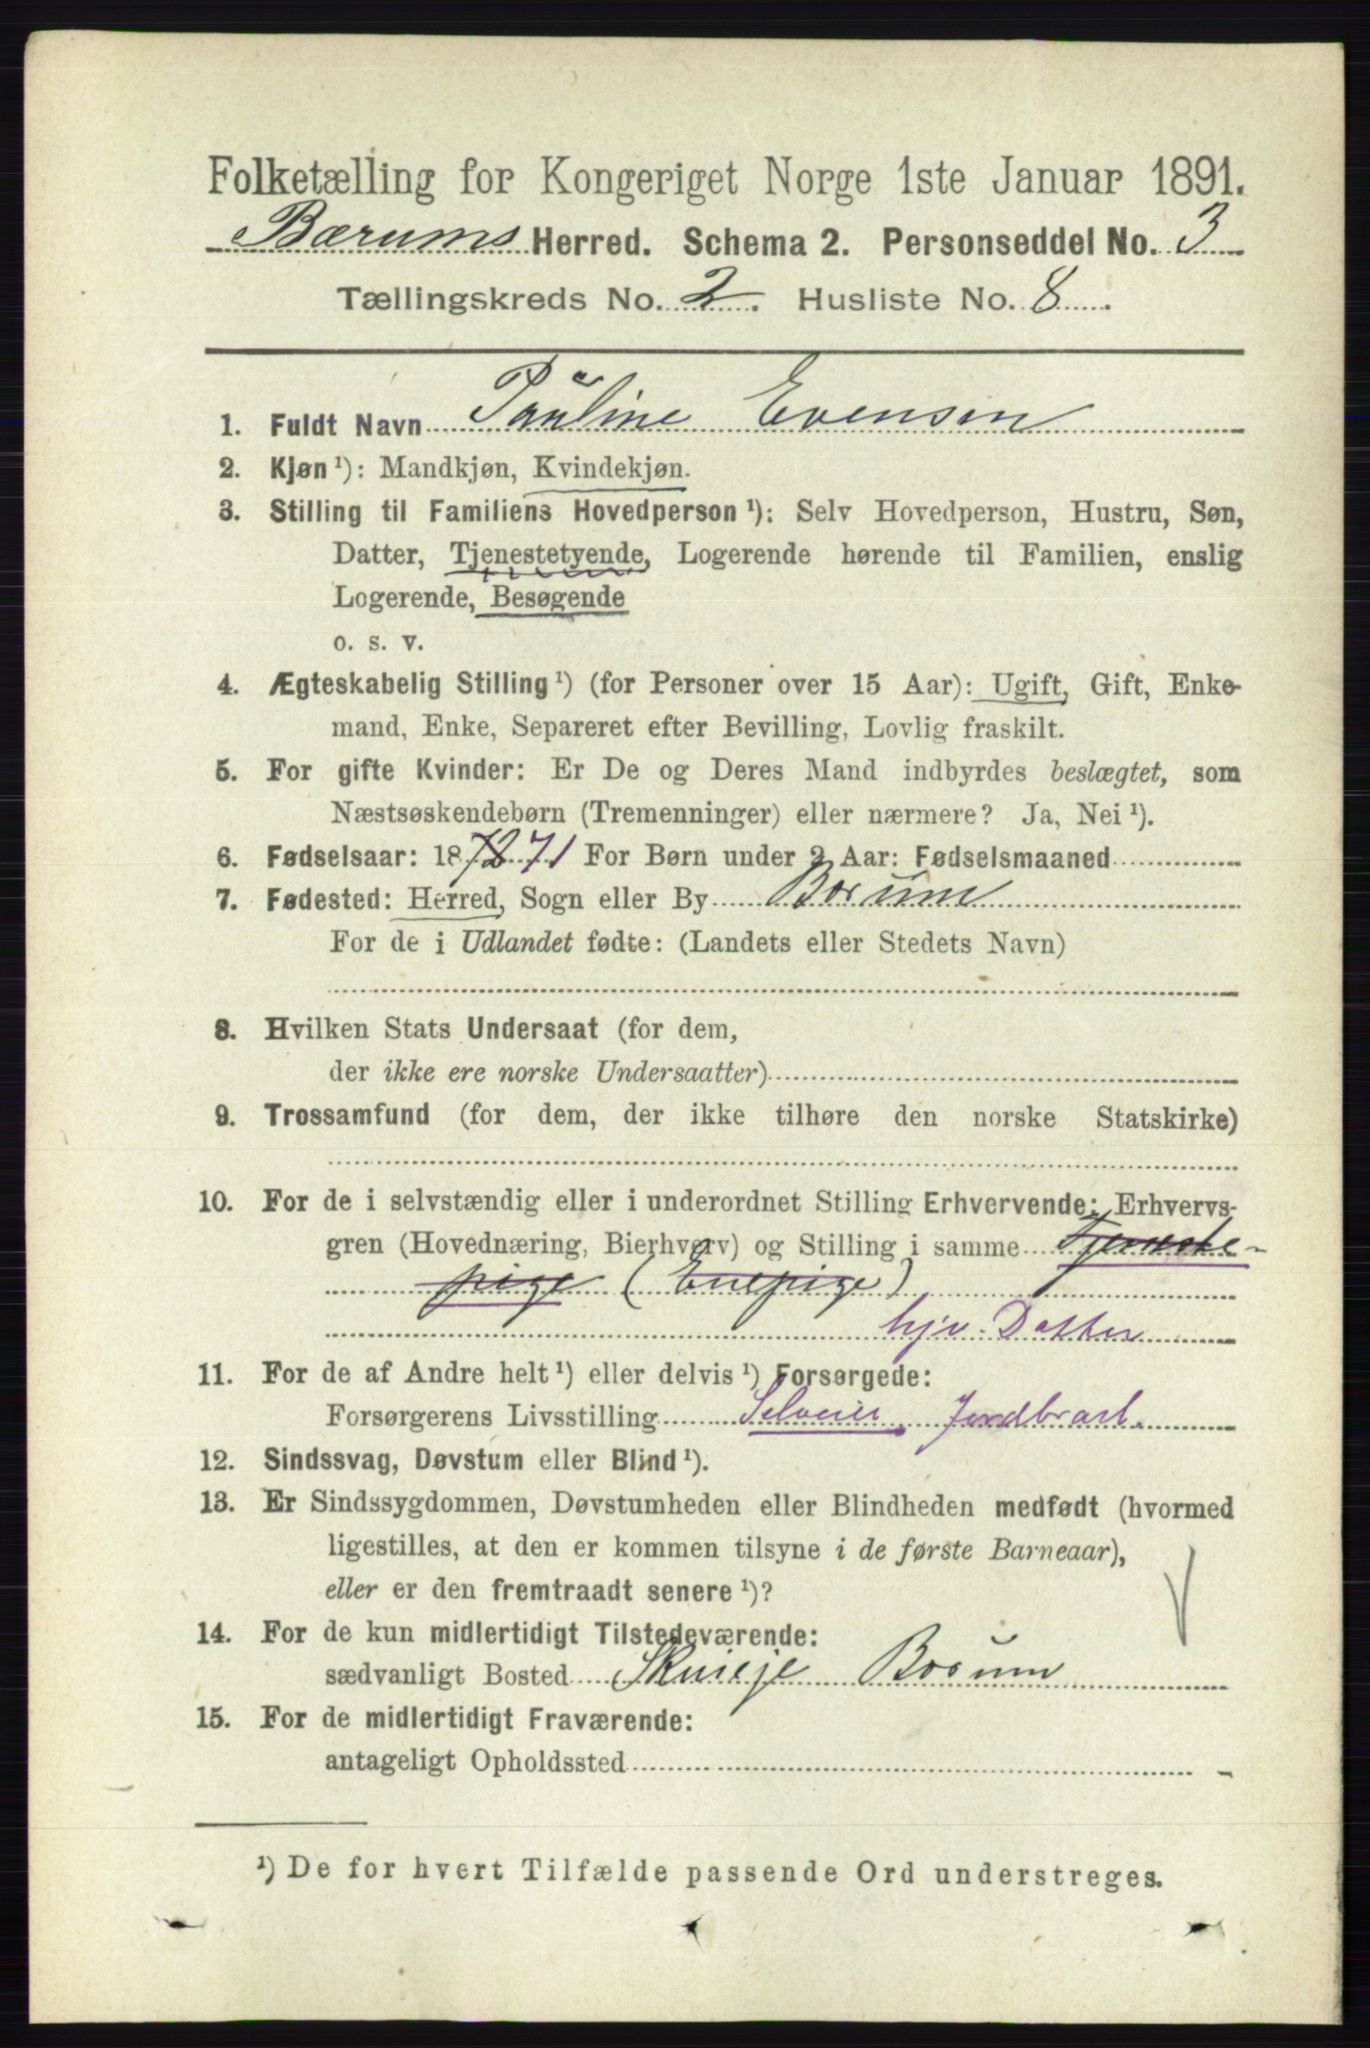 Folketælling for Kongeriget Norge 1ste Januar 1891.
Bærums Herred. Schema 2. Personseddel No. 3
Tællingskreds No. 2. Husliste No. 8.
1. Fuldt Navn Pauline Evensen
2. Kjøn ¹): Mandkjøn, Kvindekjøn.
3. Stilling til Familiens Hovedperson ¹): Selv Hovedperson, Hustru, Søn,
Datter, Tjenestetyende, Logerende hørende til Familien, enslig
Logerende, Besøgende
o. s. v.
4. Ægteskabelig Stilling ¹) (for Personer over 15 Aar): Ugift, Gift, Enke-
mand, Enke, Separeret efter Bevilling, Lovlig fraskilt.
5. For gifte Kvinder: Er De og Deres Mand indbyrdes beslægtet, som
Næstsøskendebørn (Tremenninger) eller nærmere? Ja, Nei ¹).
6. Fødselsaar: 1872 71 For Børn under 2 Aar: Fødselsmaaned
7. Fødested: Herred, Sogn eller By Borum
For de i Udlandet fødte: (Landets eller Stedets Navn)
8. Hvilken Stats Undersaat (for dem,
der ikke ere norske Undersaatter)
9. Trossamfund (for dem, der ikke tilhøre den norske Statskirke)
10. For de i selvstændig eller i underordnet Stilling Erhvervende: Erhvervs-
gren (Hovednæring, Bierhverv) og Stilling i samme Tjeneste-
pige (Enepige)
hjv. Datter
11. For de af Andre helt ¹) eller delvis ¹) Forsørgede:
Forsørgerens Livsstilling Selveier Jordbrært.
12. Sindssvag, Døvstum eller Blind ¹).
13. Er Sindssygdommen, Døvstumheden eller Blindheden medfødt (hvormed
ligestilles, at den er kommen tilsyne i de første Barneaar),
eller er den fremtraadt senere ¹)?
14. For de kun midlertidigt Tilstedeværende:
sædvanligt Bosted Skuieje Borum
15. For de midlertidigt Fraværende:
antageligt Opholdssted
¹) De for hvert Tilfælde passende Ord understreges.